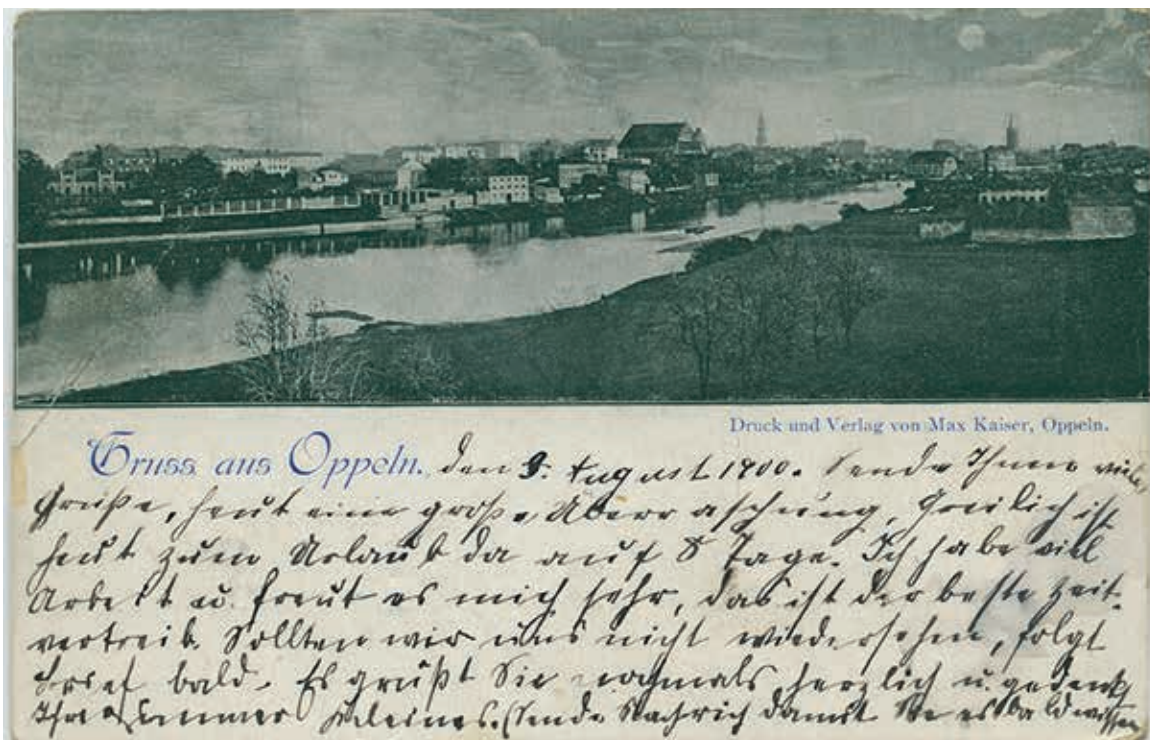 Druck und Verlag von Max Kaiser, Oppeln.
Gruss aus Oppeln. den 9. August 1900. Sende Ihnen viele
Grüße, heut eine große Überraschung, ist
heut zum Urlaub da auf 8 Tage. Ich habe viel
Arbeit u. freut es mich sehr, das ist der beste Zeit-
vertreib. Sollten wir uns nicht wiedersehen, folgt
Brief bald. Es grüßt Sie nochmals herzlich u. gedenkt
Ihr Sende Nachrich damit Sie es bald wissen